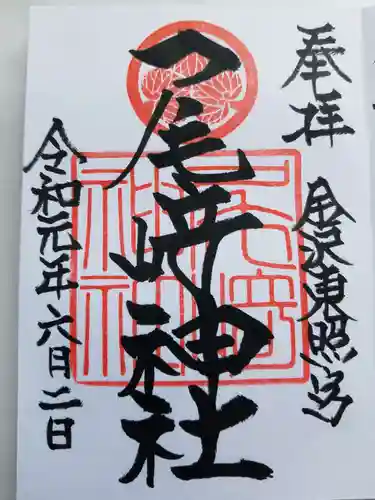 奉拝
金沢東照宮
尾﨑神社
令和元年六月二日